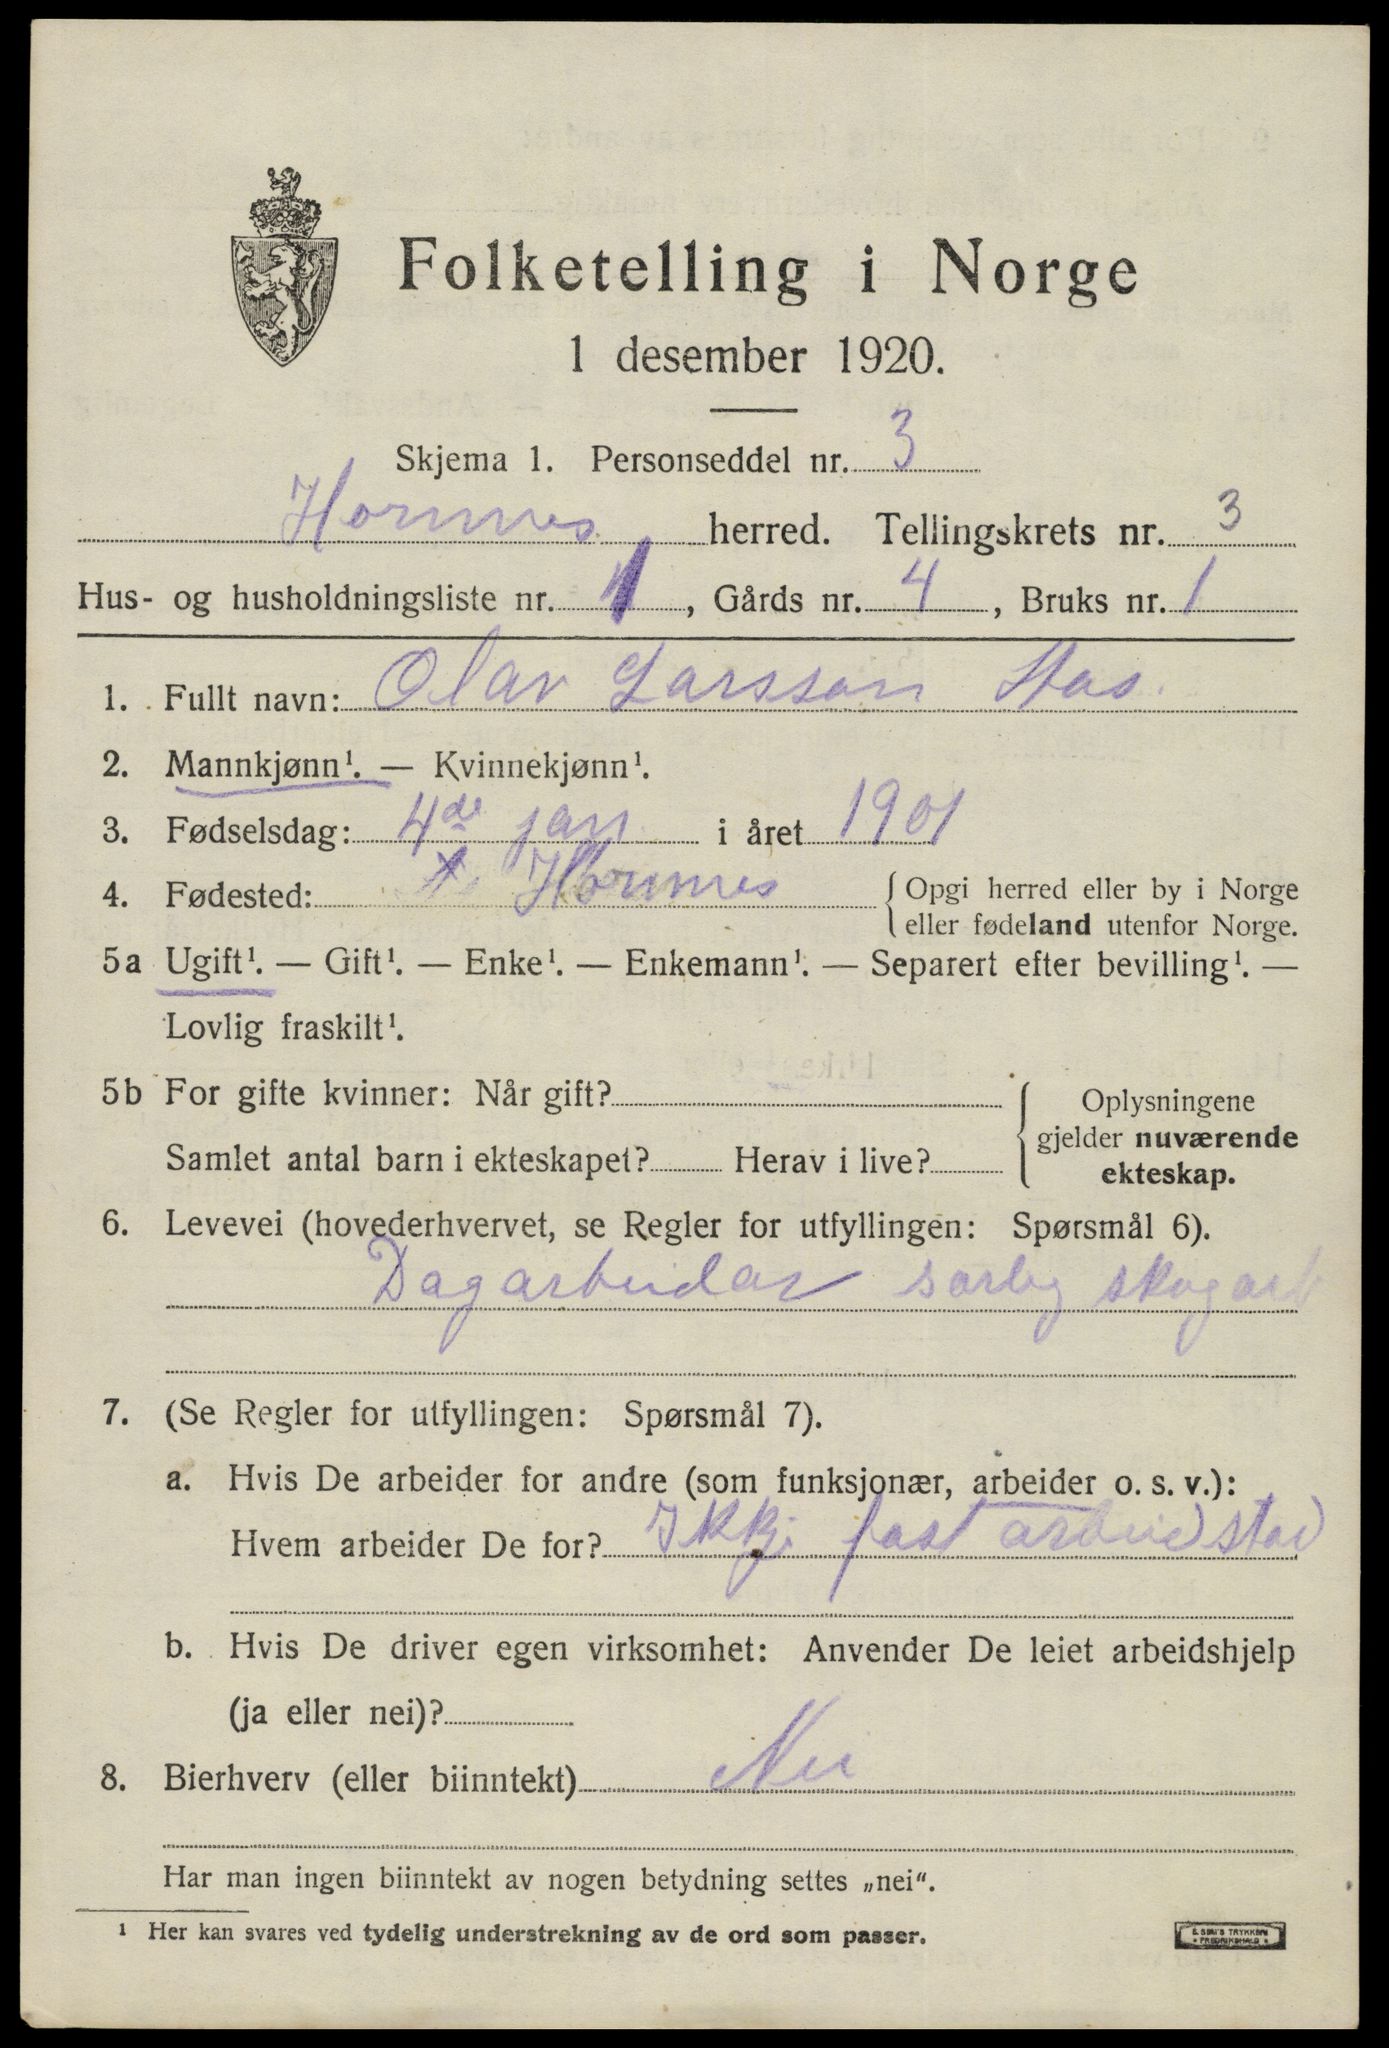 Folketelling i Norge
1 desember 1920.
Skjema 1. Personseddel nr. 3
Hornnes herred. Tellingskrets nr. 3
Hus- og husholdningsliste nr. 1, Gårds nr. 4, Bruks nr. 1
1. Fullt navn: Olav Larsson
2. Mannkjønn¹. — Kvinnekjønn¹.
3. Fødselsdag: 4de jan i året 1901
4. Fødested: Hornnes {Opgi herred eller by i Norge
eller fødeland utenfor Norge.
5a Ugift¹. — Gift¹. — Enke¹. — Enkemann¹. — Separert efter bevilling¹. —
Lovlig fraskilt¹.
5b For gifte kvinner: Når gift? { Oplysningene
gjelder nuværende
Samlet antal barn i ekteskapet? Herav i live?
ekteskap.
6. Levevei (hovederhvervet, se Regler for utfyllingen: Spørsmål 6).
Dagarbeidar særleg skogarb
7. (Se Regler for utfyllingen: Spørsmål 7).
a. Hvis De arbeider for andre (som funksjonær, arbeider o. s. v.):
Hvem arbeider De for? Ikkje fast arbeidstad
b. Hvis De driver egen virksomhet: Anvender De leiet arbeidshjelp
(ja eller nei)?
8. Bierhverv (eller biinntekt) Nei
Har man ingen biinntekt av nogen betydning settes „nei“.
¹ Her kan svares ved tydelig understrekning av de ord som passer.
TRYKKERI
FREDRIKSHALD